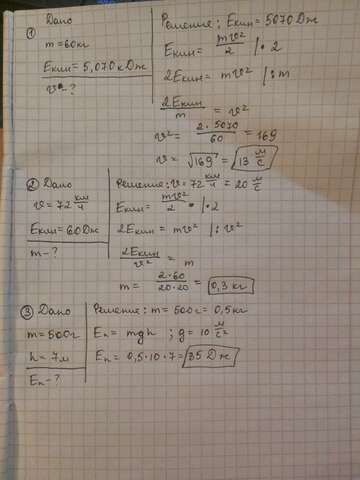 ① Дано
m = 60кг
Eкин = 5,070 кДж
v - ?
Решение: Eкин = 5070 Дж
Eкин = mv²/2 | · 2
2Eкин = mv² | : m
2Eкин/m = v²
v² = 2 · 5070/60 = 169
v = √169 = 13 м/с
② Дано
v = 72 км/ч
Eкин = 60 Дж
m - ?
Решение: v = 72 км/ч = 20 м/с
Eкин = mv²/2 | · 2
2Eкин = mv² | : v²
2Eкин/v² = m
m = 2 · 60/20 · 20 = 0,3 кг
③ Дано
m = 500г
h = 7м
Eп - ?
Решение: m = 500г = 0,5кг
Eп = mgh ; g = 10 м/с²
Eп = 0,5 · 10 · 7 = 35 Дж